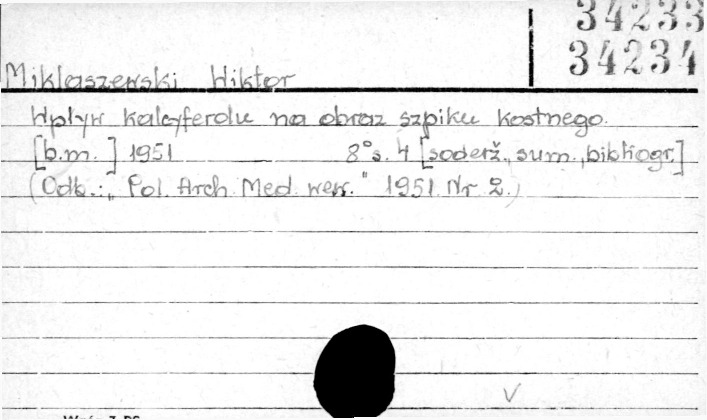 34233
34234
Miklaszewski Wiktor
Wpływ kalcyferolu na obraz szpiku kostnego.
[b.m.] 1951 8° s. 4 [soderž., sum., bibliogr.]
(Odb.: „Pol. Arch. Med. wew." 1951. Nr 2.)
V